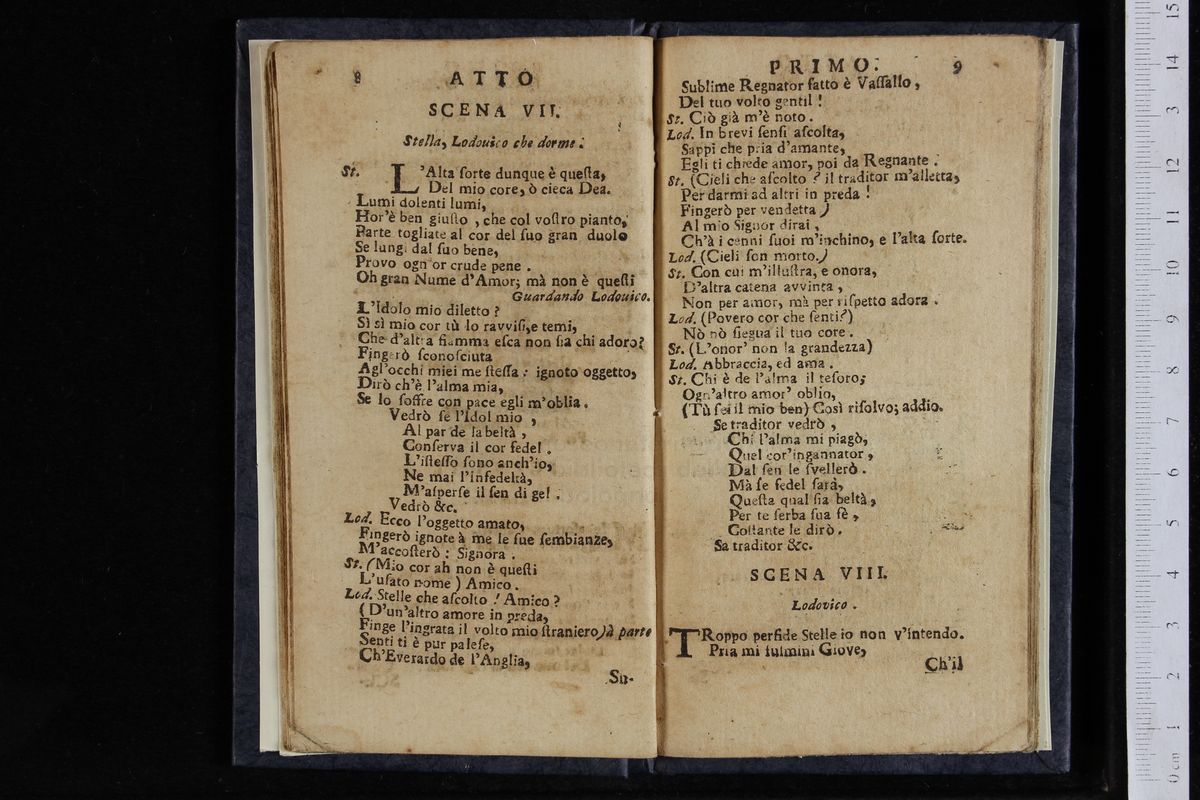 8 ATTO
SCENA VII.
Stella, Lodouico che dorme.
St. L'Alta ſorte dunque è queſta,
Del mio core, ò cieca Dea.
Lumi dolenti lumi,
Hor'è ben giuſto, che col voſtro pianto,
Parte togliate al cor del ſuo gran duolo
Se lungi dal ſuo bene,
Provo ogn'or crude pene.
Oh gran Nume d'Amor; mà non è queſti
Guardando Lodouico.
L'Idolo mio diletto?
Sì sì mio cor tù lo ravviſi, e temi,
Che d'altra fiamma eſca non ſia chi adoro?
Fingerò ſconoſciuta
Agl'occhi miei me ſteſſa: ignoto oggetto,
Dirò ch'è l'alma mia,
Se lo ſoffre con pace egli m'oblia.
Vedrò ſe l'Idol mio,
Al par de la beltà,
Conſerva il cor fedel.
L'iſteſſo ſono anch'io,
Ne mai l'infedeltà,
M'aſperſe il ſen di gel.
Vedrò &c.
Lod. Ecco l'oggetto amato,
Fingerò ignote à me le ſue ſembianze,
M'accoſterò: Signora.
St. (Mio cor ah non è queſti
L'uſato nome) Amico.
Lod. Stelle che aſcolto! Amico?
(D'un'altro amore in preda,
Finge l'ingrata il volto mio ſtraniero)à parte
Senti ti è pur paleſe,
Ch'Everardo de l'Anglia,
Su-
PRIMO. 9
Sublime Regnator fatto è Vaſſallo,
Del tuo volto gentil!
St. Ciò già m'è noto.
Lod. In brevi ſenſi aſcolta,
Sappi che pria d'amante,
Egli ti chiede amor, poi da Regnante.
St. (Cieli che aſcolto? il traditor m'alletta,
Per darmi ad altri in preda!
Fingerò per vendetta)
Al mio Signor dirai,
Ch'à i cenni ſuoi m'inchino, e l'alta ſorte.
Lod. (Cieli ſon morto.)
St. Con cui m'illuſtra, e onora,
D'altra catena avvinta,
Non per amor, mà per riſpetto adora.
Lod. (Povero cor che ſenti?)
Nò nò ſiegua il tuo core.
St. (L'onor' non la grandezza)
Lod. Abbraccia, ed ama.
St. Chi è de l'alma il teſoro;
Ogn'altro amor' oblio,
(Tù ſei il mio ben) Così riſolvo; addio.
Se traditor vedrò,
Chi l'alma mi piagò,
Quel cor'ingannator,
Dal ſen le ſvellerò.
Mà ſe fedel ſarà,
Queſta qual ſia beltà,
Per te ſerba ſua fè,
Coſtante le dirò.
Sa traditor &c.
SCENA VIII.
Lodovico.
TRoppo perfide Stelle io non v'intendo.
Pria mi fulmini Giove,
Ch'il
15
14
13
12
11
10
9
8
7
6
5
4
3
2
1
0 cm